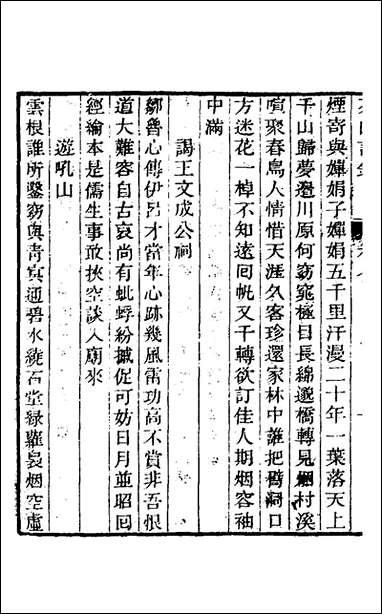 煙寄與嬋娟子嬋娟五千里汗漫二十年一葉落天上
千山歸夢邊川原何窈窕極目長綿邈橋轉見烟村溪
喧聚春鳥人情惜天涯久客珍還家林中誰把釣洞口
方迷花一棹不知遠回帆又千轉欲訂佳人期烟容袖
中滿
謁王文成公祠
鄒魯心傳伊呂才當年心跡幾風雷功高不賞非吾恨
道大難容自古哀尚有蚍蜉紛撼促可妨日月並昭回
經綸本是儒生事敢挾空談入廟來
遊吼山
雲根誰所鑿窈與青冥通碧水繞石堂綠蘿裊烟空虛